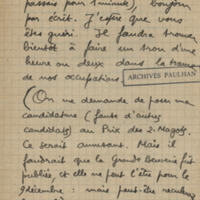 passais pour 1 minute), bonjour
par écrit. J'espère que vous
êtes guéri. Il faudra trouver
bientôt à faire un trou d'une
heure ou deux dans la trame
de nos occupations.
ARCHIVES PAULHAN
(On me demande de poser ma
candidature (faute d'autres
candidats) au Prix des 2-Magots.
Ce serait amusant. Mais il
faudrait que la Grande Beuverie fût
publiée, et elle ne peut l'être pour le
9 décembre : mais peut-être reculera